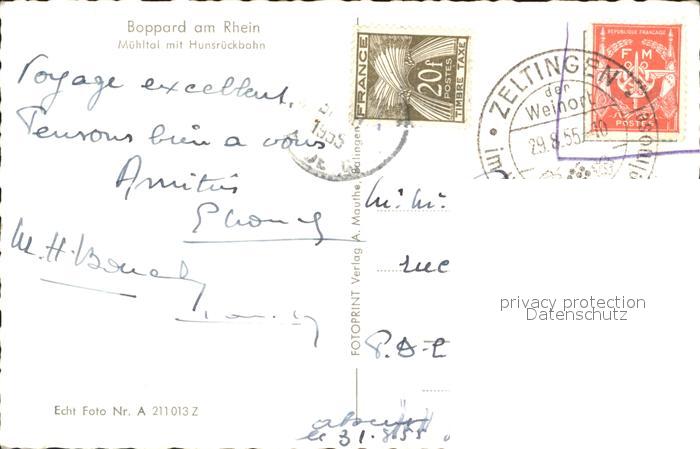 Boppard am Rhein
Mühltal mit Hunsrückbahn
Voyage excellent.
Pensons bien à vous
Amitiés
M. H. Bonal
Echt Foto Nr. A 211013 Z
FOTOPRINT Verlag A. Mauthe, Balingen
FRANCE
20f
POSTES
TIMBRE TAXE
1955
ZELTINGEN
der
Weinort
29.8.55-10
REPUBLIQUE FRANÇAISE
F M
POSTES
rue
P.D.C
absent
le 31.8.55
privacy protection
Datenschutz